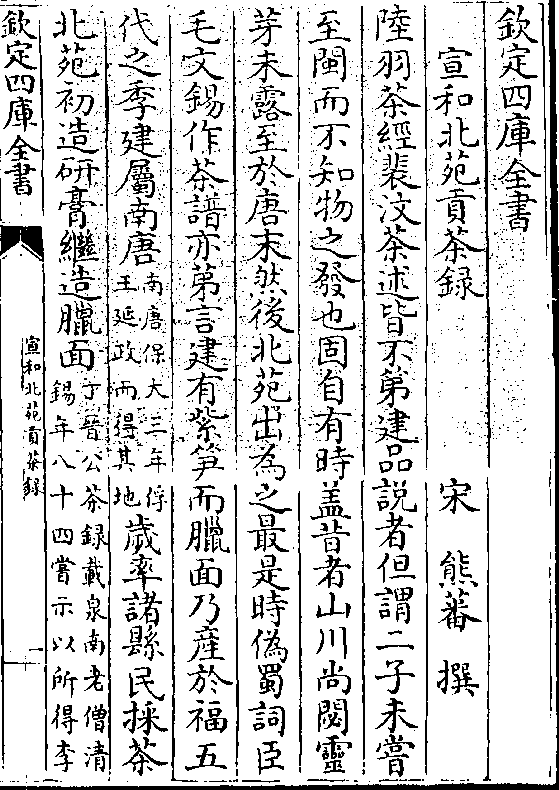 欽定四庫全書
宣和北苑貢茶録
宋 熊蕃 撰
陸羽茶經裴汶茶述皆不第建品説者但謂二子未嘗
至閩而不知物之發也固自有時葢昔者山川尚閟靈
芽未露至於唐末然後北苑出為之最是時偽蜀詞臣
毛文錫作茶譜亦第言建有紫笋而臘面乃產於福五
代之季建屬南唐南唐保大三年俘王延政而得其地歲率諸縣民採茶
北苑初造研膏繼造臘面丁晉公茶録載泉南老僧清錫年八十四嘗示以所得李
欽定四庫全書
宣和北苑貢茶録
一